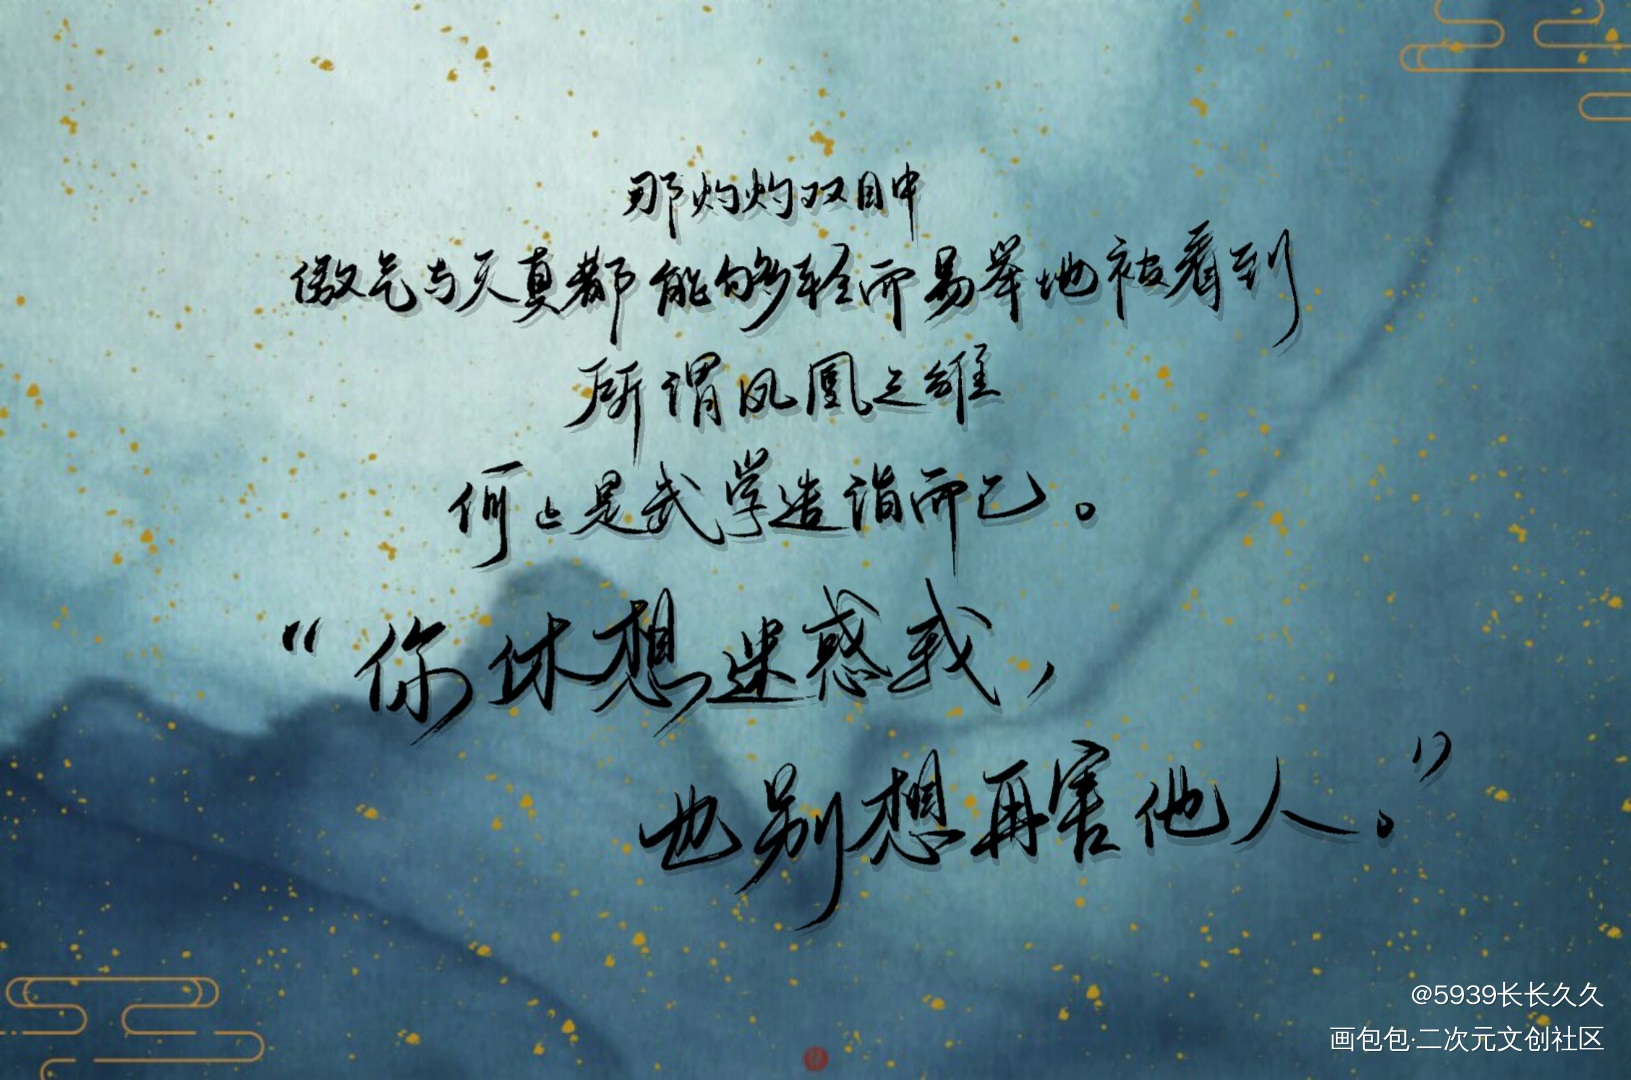 那灼灼双目中
傲气与天真都能够轻而易举地被看到
所谓凤凰之雏
何止是武学造诣而已。
“你休想迷惑我，
也别想再害他人。”
@5939长长久久
画包包·二次元文创社区